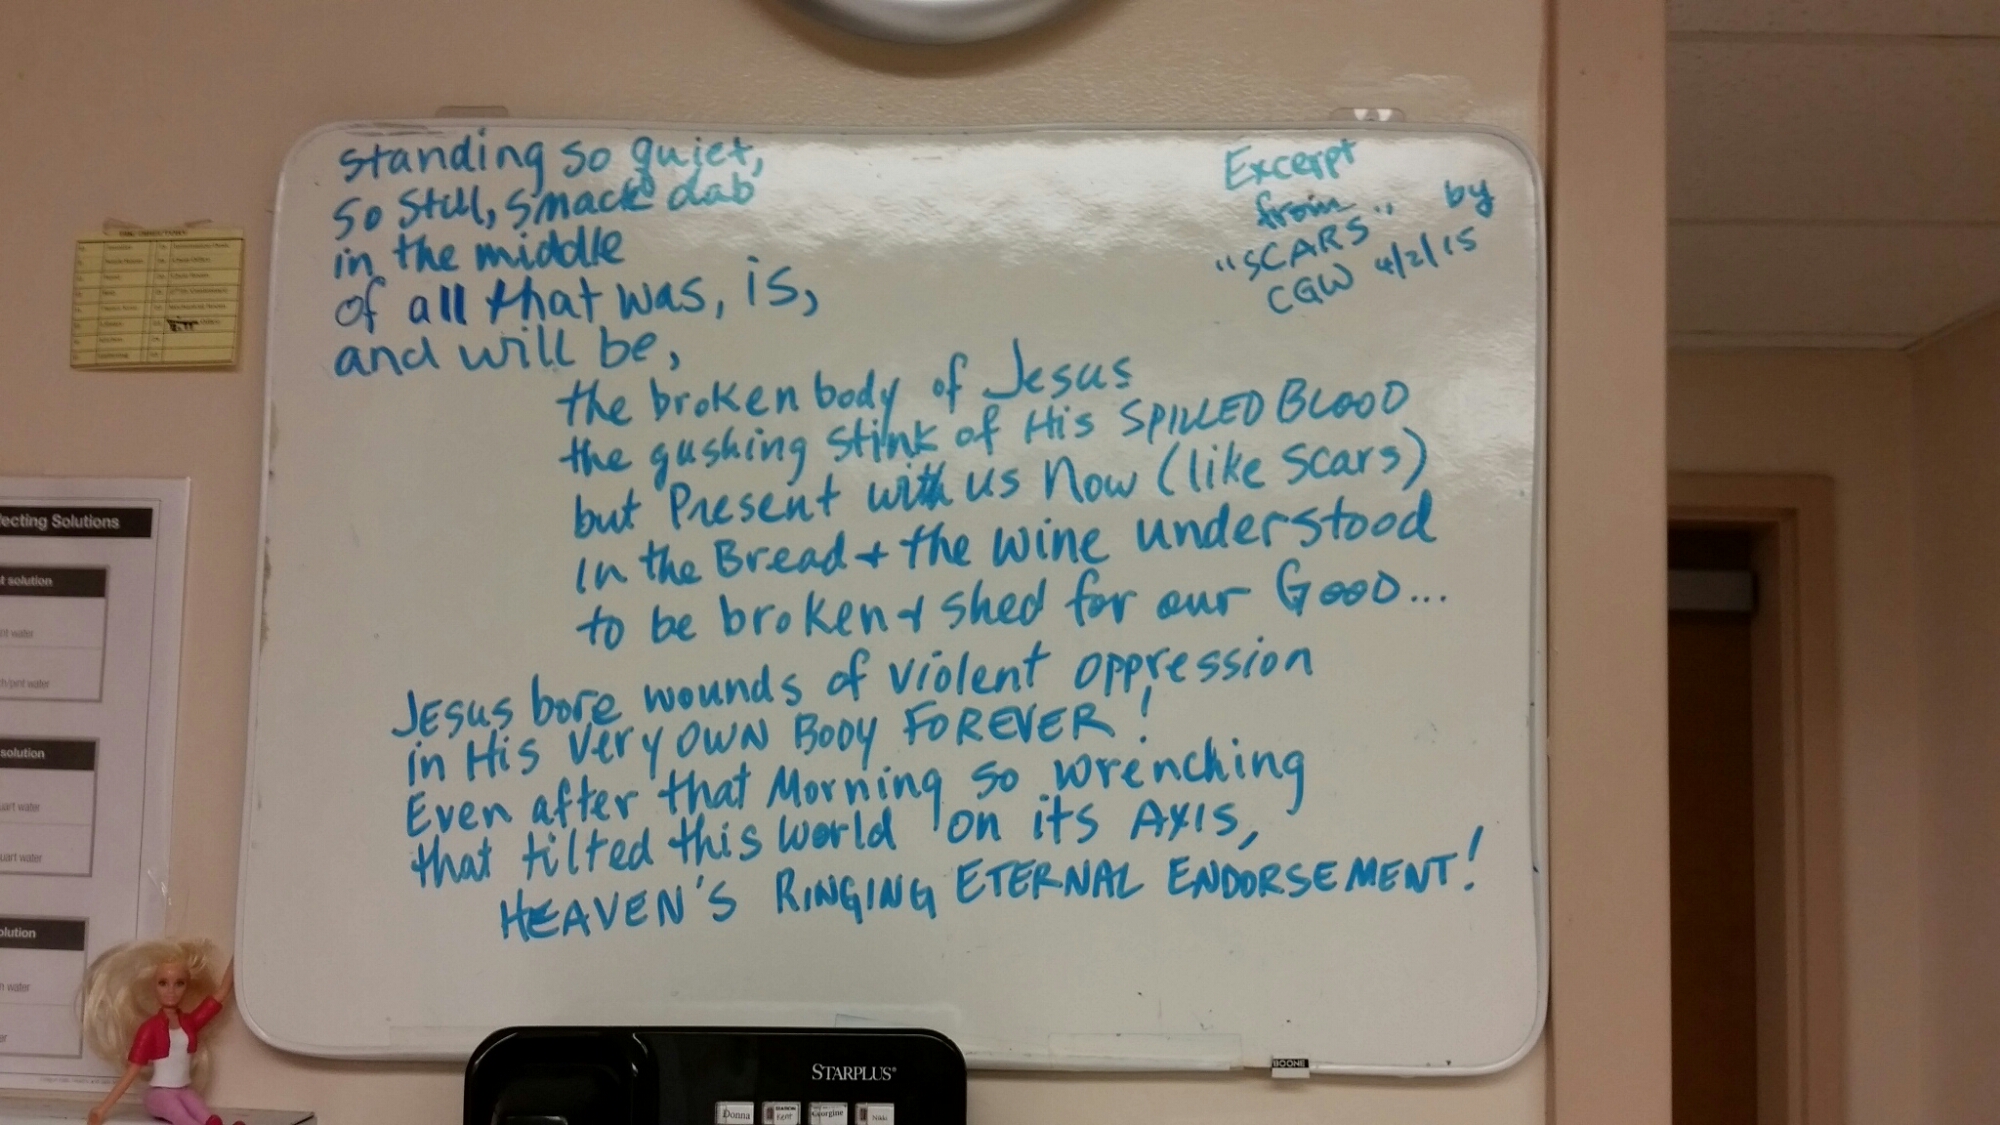 standing so quiet,
so still, smack dab
in the middle
of all that was, is,
and will be,
the broken body of Jesus
the gushing stink of His SPILLED BLOOD
but Present with us Now (like scars)
in the Bread + the wine understood
to be broken + shed for our GOOD...
JESUS bore wounds of violent oppression
in His very OWN BODY FOREVER!
Even after that Morning so wrenching
that tilted this world on its AXIS,
HEAVEN'S RINGING ETERNAL ENDORSEMENT!
Excerpt
from
"SCARS" by
CGW 4/2/15
ecting Solutions
solution
water
solution
uart water
uart water
olution
water
STARPLUS
Donna
Kent
Georgine
Nikki
BOONE